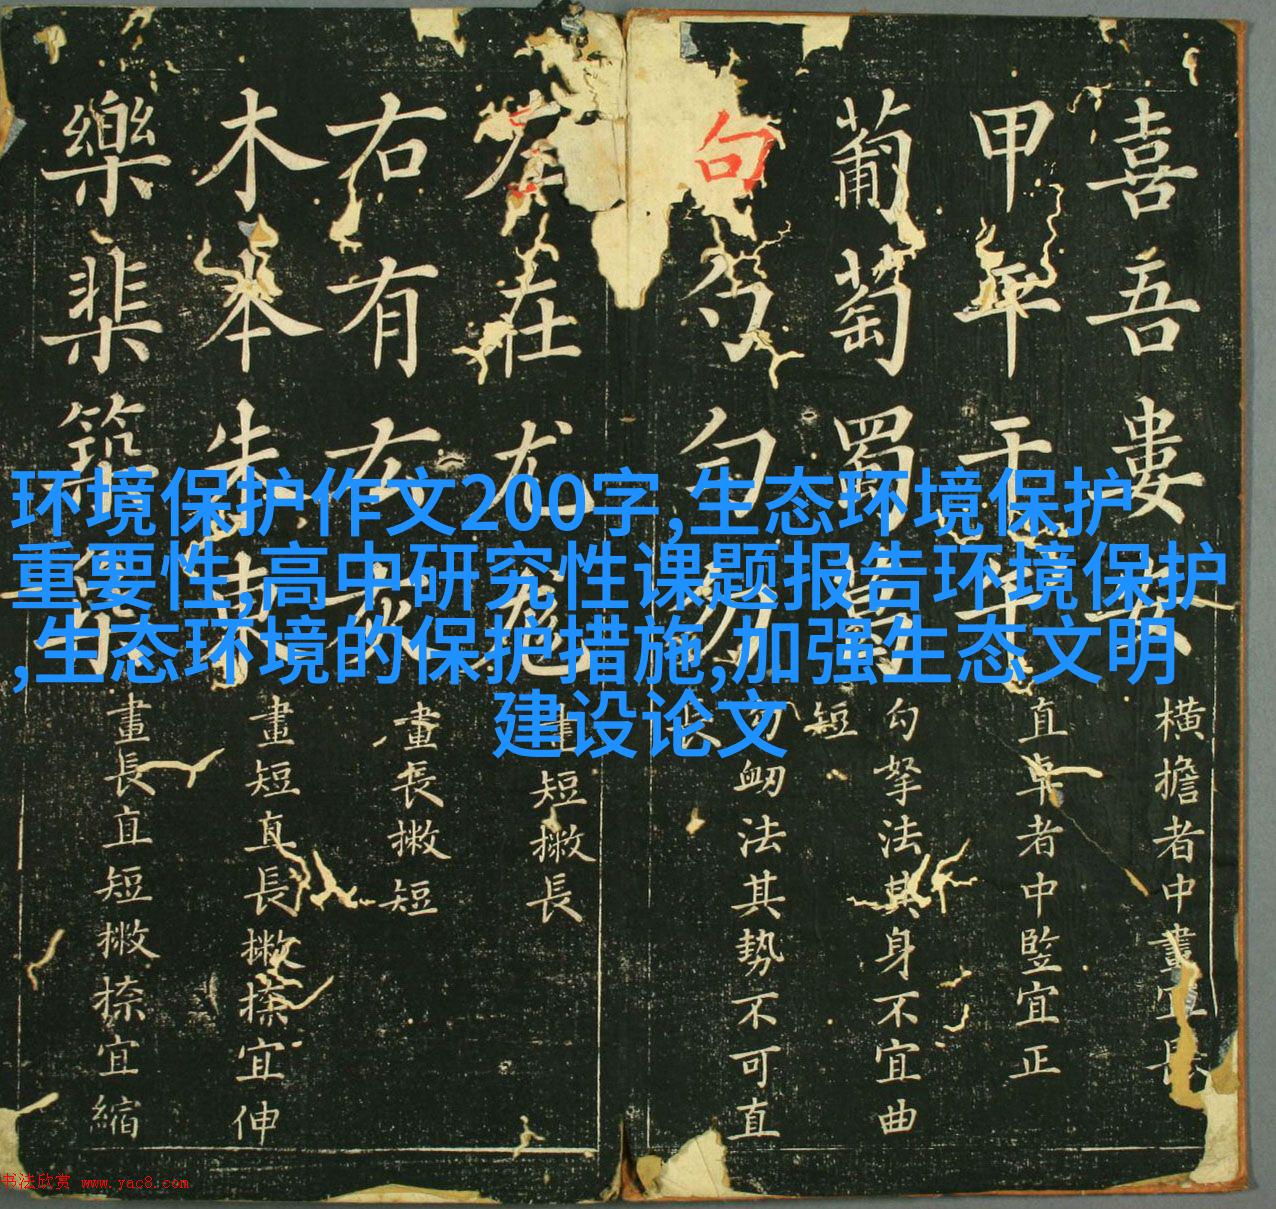 环境保护作文200字,生态环境保护
重要性,高中研究性课题报告环境保护
,生态环境的保护措施,加强生态文明
建设论文
喜吾婁
横擔者中畫宜
甲平干
直卓者中竪宜正
葡萄蜀
短
勾拏法其身不宜曲
句勺勿
勾衂法其势不可直
左在尤尨
短撇長
右有友灰
畫長撇短
木本朱
畫短直長撇捺宜伸
樂棐築
畫長直短撇捺宜縮
书法欣赏 www.yac8.com